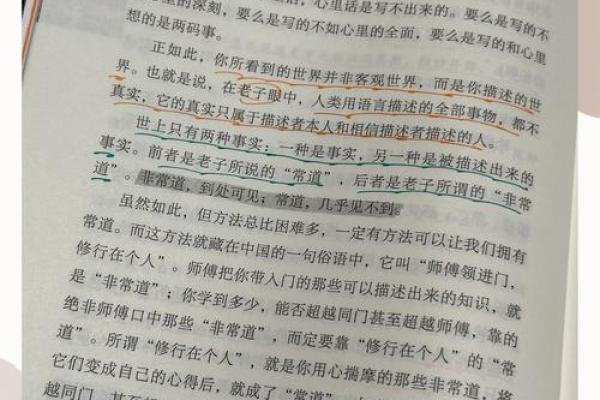 里的深刻，要么是写的不如心里的全面，要么是写的和心里
想的是两码事。
正如此，你所看到的世界并非客观世界，而是你描述的世
界。也就是说，在老子眼中，人类用语言描述的全部事物，都不
真实，它的真实只属于描述者本人和相信描述者描述的人。
世上只有两种事实：一种是事实，另一种是被描述出来的
事实。前者是老子所说的“常道”，后者是老子所谓的“非常
道”。非常道，到处可见；常道，几乎见不到。
虽然如此，但方法总比困难多，一定有方法可以让我们拥有
常道。而这方法就藏在中国的一句俗语中，它叫“师傅领进门，
修行在个人”。师傅把你带入门的那些可以描述出来的知识，就
是“非常道”；你学到多少，能否超越同门甚至超越师傅，靠的
绝非师傅口中那些“非常道”，而定要靠“修行在个人”的“常
道”。所谓“修行在个人”，就是你用心揣摩的那些非常道，将
它们变成自己的心得后，就成了“常道”
越同门，甚至